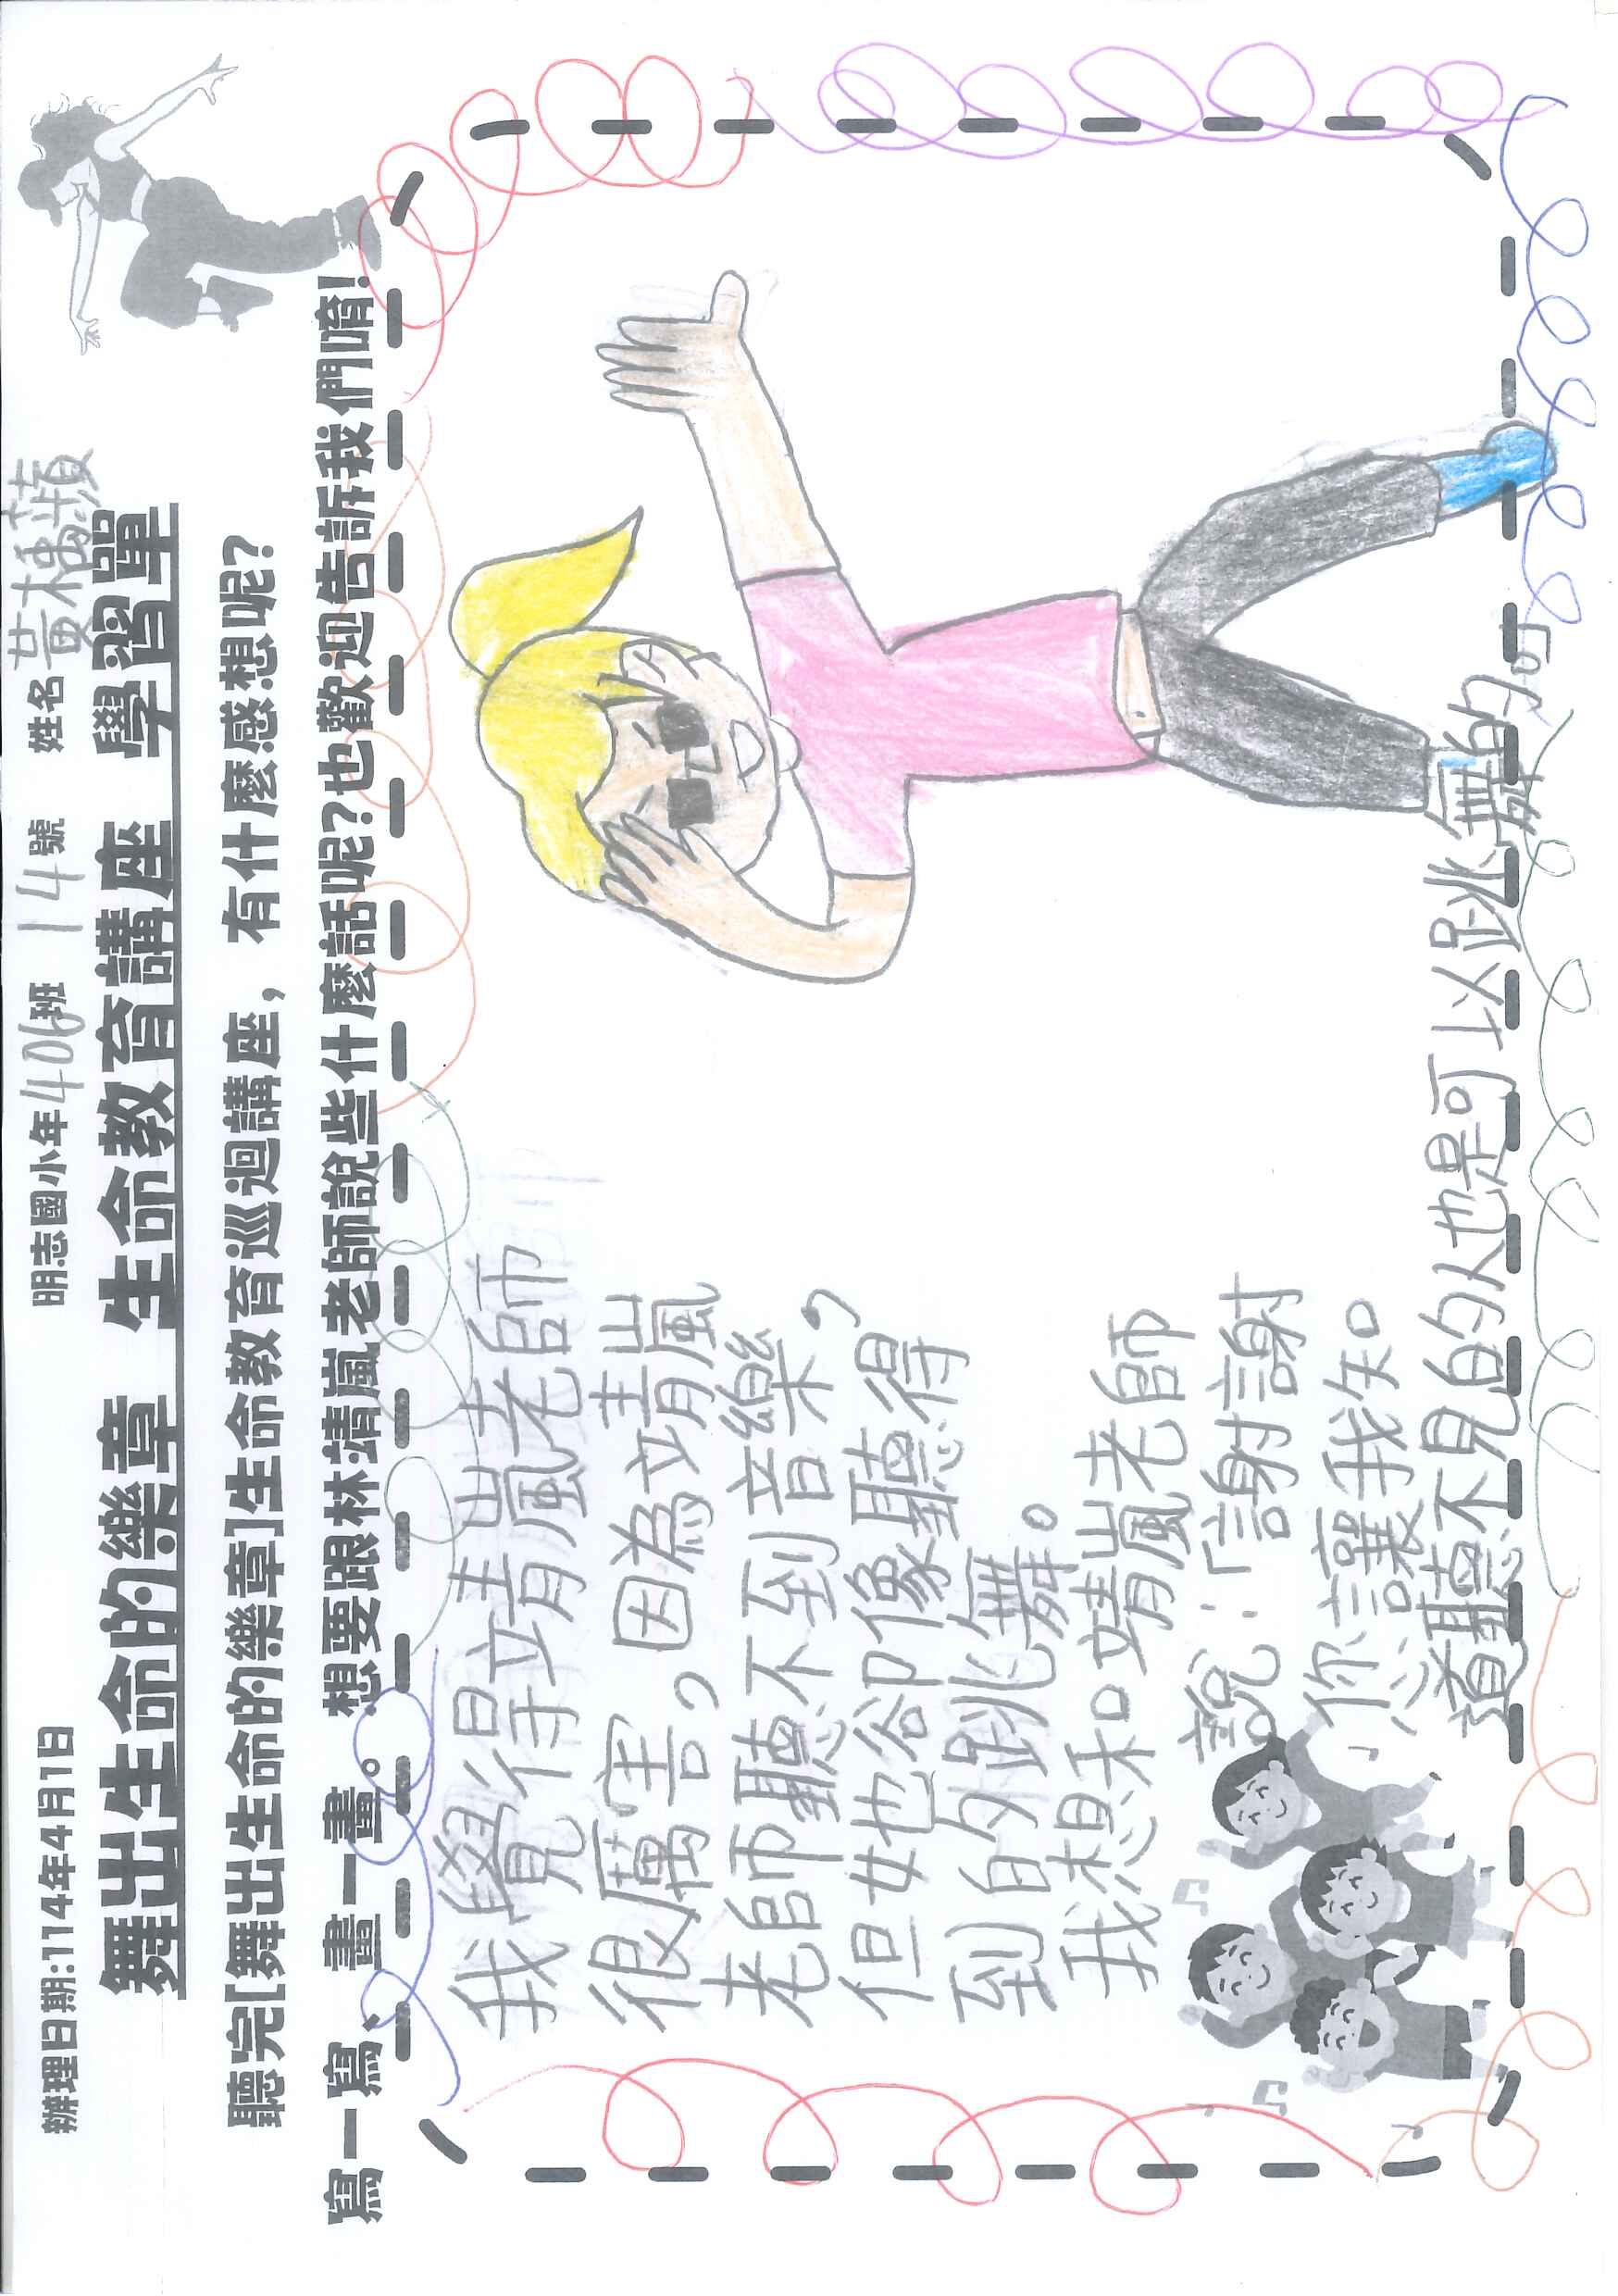 辦理日期:114年4月1日 明志國小年406班 14號 姓名 黃橘蘋
舞出生命的樂章 生命教育講座 學習單
聽完[舞出生命的樂章]生命教育巡迴講座，有什麼感想呢?
寫一寫、畫一畫。想要跟林靖嵐老師說些什麼話呢?也歡迎告訴我們唷!
我覺得靖嵐老師
很厲害，因為靖嵐
老師聽不到音樂，
但她卻像聽得
到白勺跳舞。
我想和靖嵐老師
說:「謝謝
您讓我知。
道聽不見的人也是可以跳舞的。」